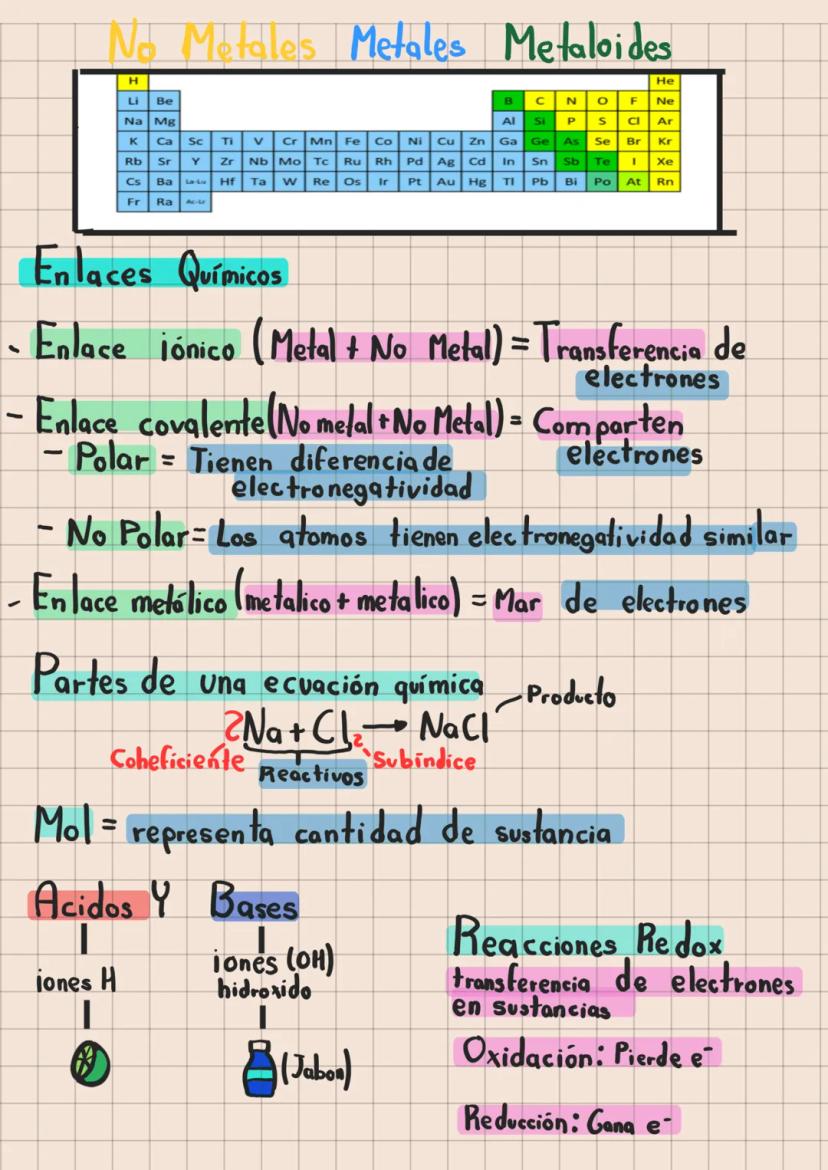 No Metales Metales Metaloides
H He
Li Be B C N O F Ne
Na Mg Al Si P S Cl Ar
K Ca Sc Ti V Cr Mn Fe Co Ni Cu Zn Ga Ge As Se Br Kr
Rb Sr Y Zr Nb Mo Tc Ru Rh Pd Ag Cd In Sn Sb Te I Xe
Cs Ba La-Lu Hf Ta W Re Os Ir Pt Au Hg Tl Pb Bi Po At Rn
Fr Ra Ac-Lr
Enlaces Químicos
- Enlace iónico (Metal + No Metal) = Transferencia de
electrones
- Enlace covalente (No metal + No Metal) = Comparten
electrones
- Polar = Tienen diferencia de
electronegatividad
- No Polar = Los atomos tienen electronegatividad similar
- Enlace metálico (metalico + metalico) = Mar de electrones
Partes de una ecuación química
Producto
2Na + Cl₂ → NaCl
Coheficiente Subíndice
Reactivos
Mol = representa cantidad de sustancia
Acidos Y Bases
iones H
iones (OH)
hidroxido
(Jabon)
Reacciones Redox
transferencia de electrones
en sustancias
Oxidación: Pierde e⁻
Reducción: Gana e⁻